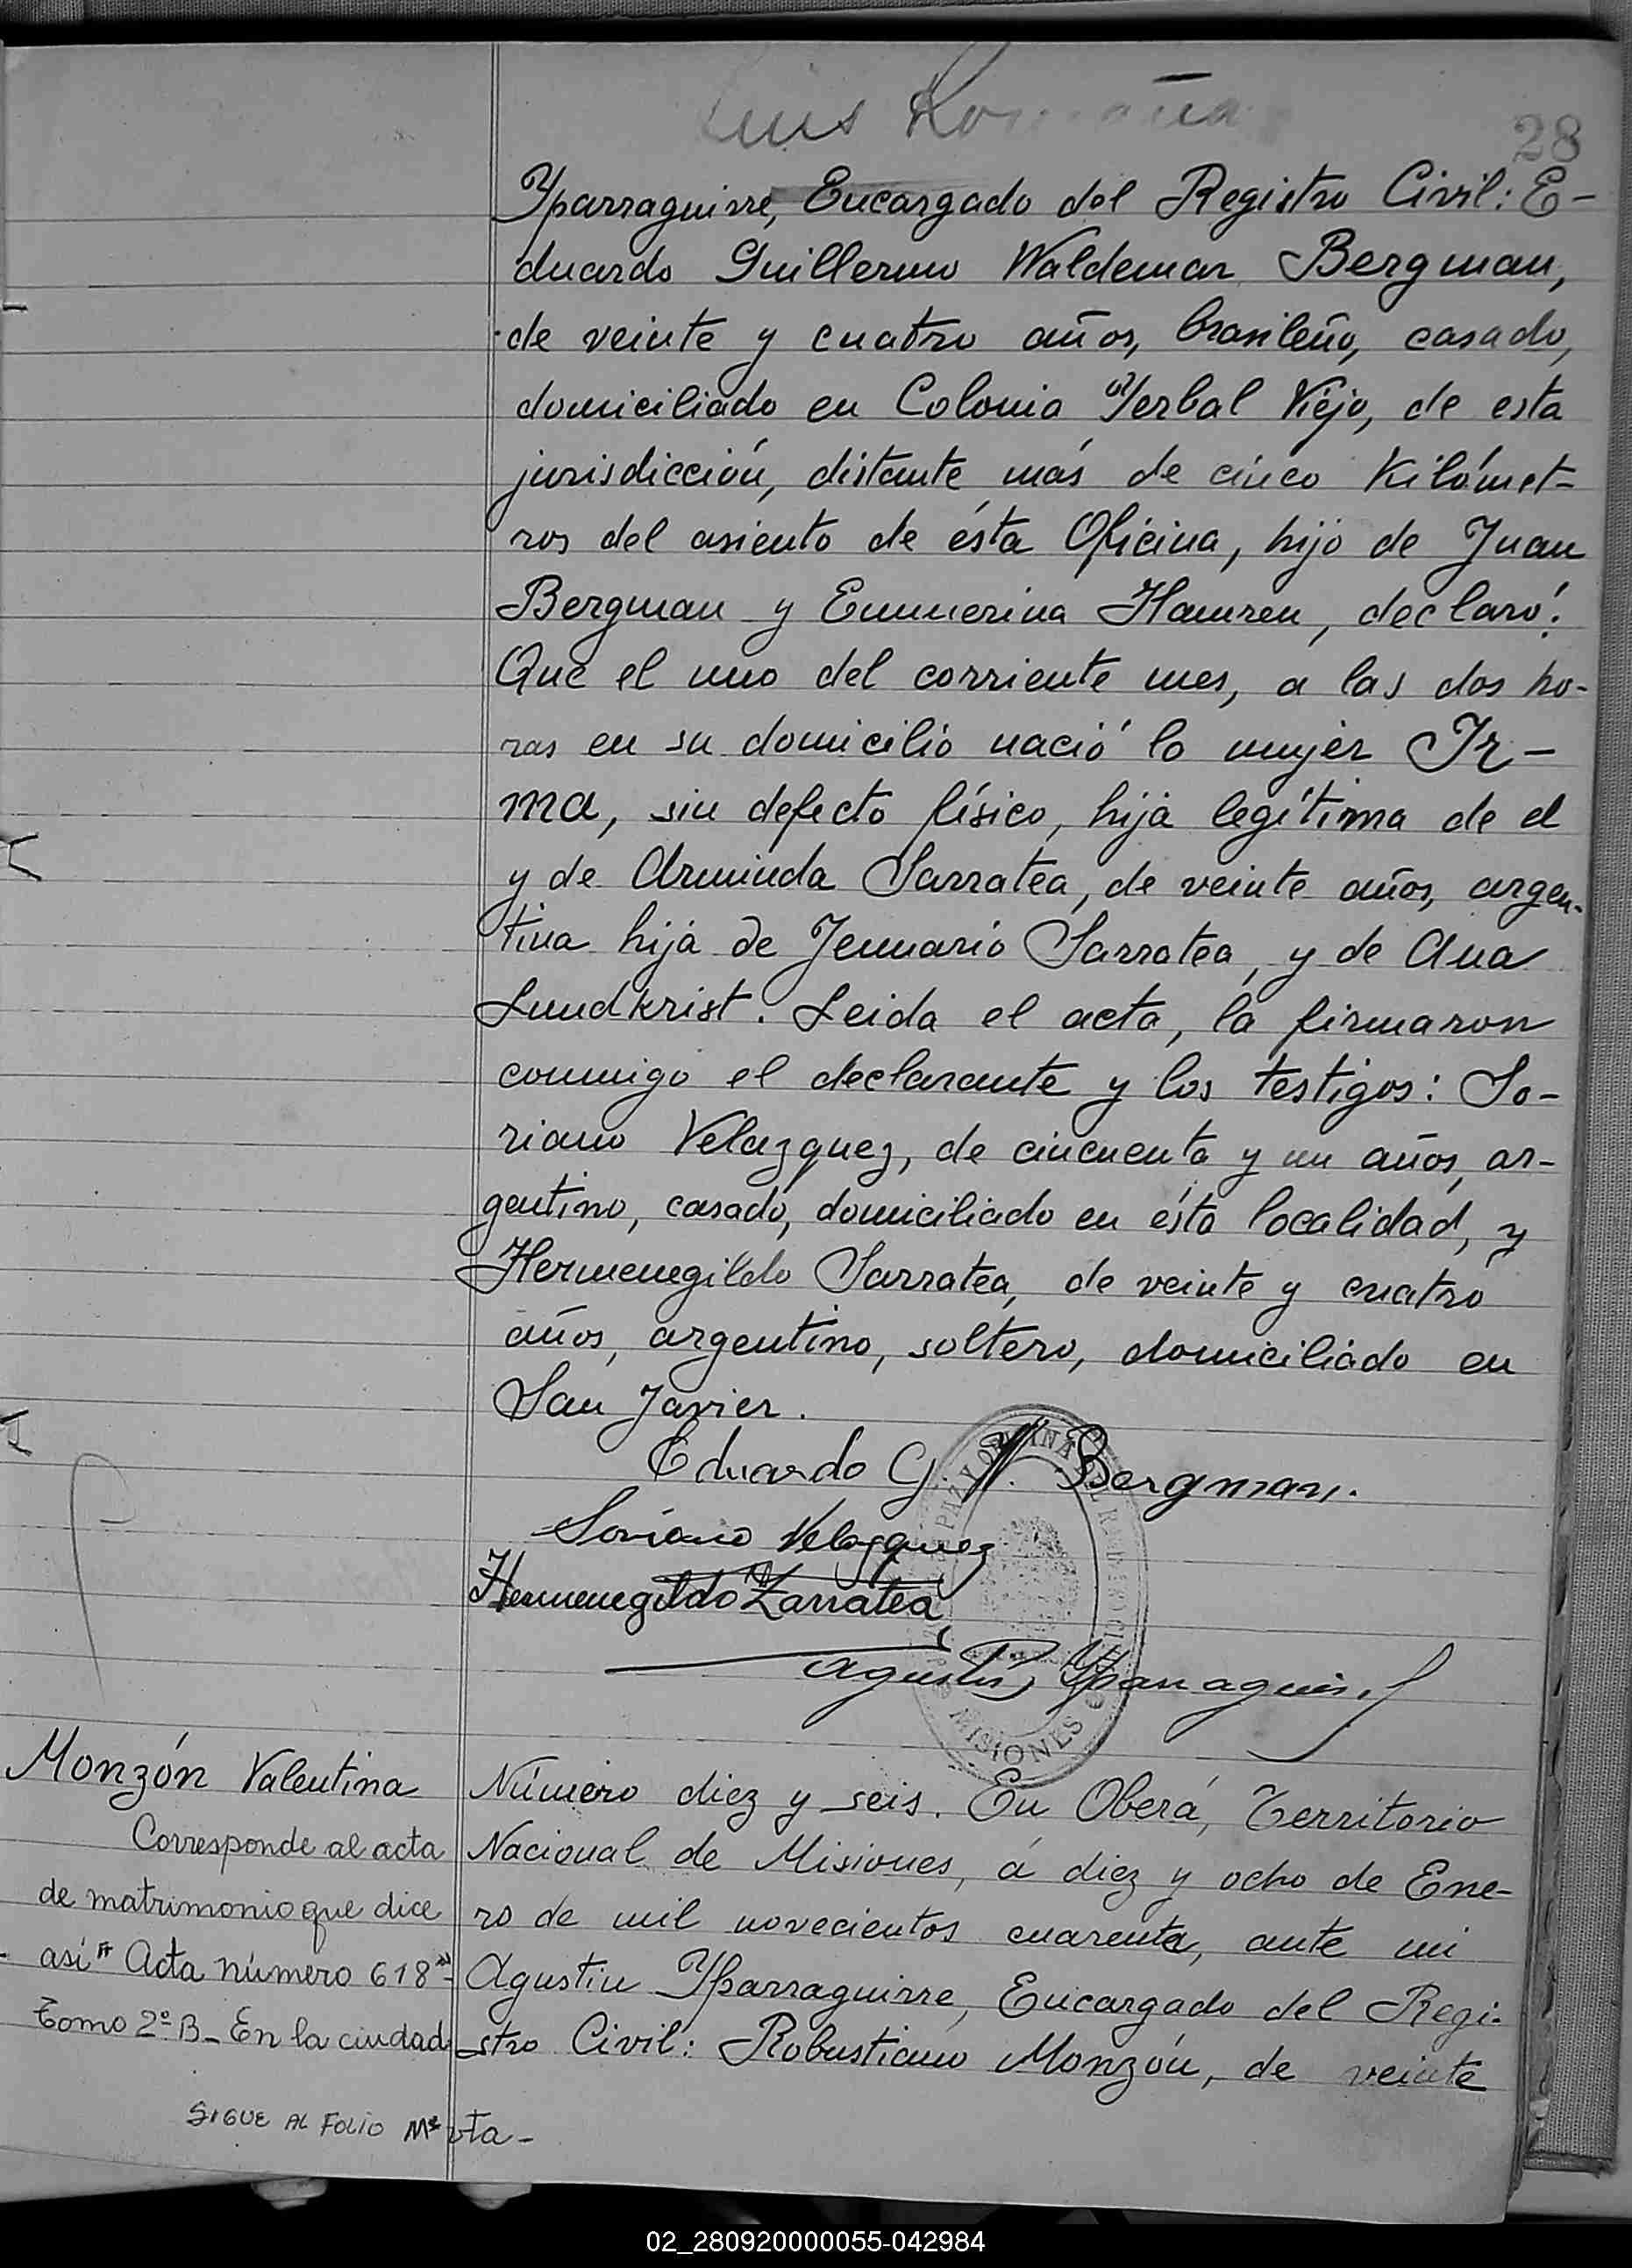 Luis Romaña
28
Yparraguirre, Encargado del Registro Civil: E-
duardo Guillermo Waldemar Bergman,
de veinte y cuatro años, brasileño, casado,
domiciliado en Colonia Yerbal Viejo, de esta
jurisdicción, distante más de cinco Kilómet-
ros del asiento de ésta Oficina, hijo de Juan
Bergman y Emmerina Hamren, declaró:
Que el uno del corriente mes, a las dos ho-
ras en su domicilio nació la mujer Ir-
ma, sin defecto físico, hija legítima de el
y de Arminda Sarratea, de veinte años, argen-
tina hija de Jenuario Sarratea, y de Ana
Lundkrist. Leida el acta, la firmaron
conmigo el declarante y los testigos: So-
riano Velazquez, de cincuenta y un años, ar-
gentino, casado, domiciliado en ésta localidad, y
Hermenegildo Sarratea, de veinte y cuatro
años, argentino, soltero, domiciliado en
San Javier.
Eduardo G. W. Bergman.
Soriano Velazquez
Hermenegildo Zarratea
Agustin Yparraguirre
MISIONES
Monzón Valentina
Corresponde al acta
de matrimonio que dice
así " Acta número 618"-
Tomo 2º B_ En la ciudad
SIGUE AL FOLIO Mº vta-
Número diez y seis. En Oberá, Territorio
Nacional de Misiones, á diez y ocho de Ene-
ro de mil novecientos cuarenta, ante mi
Agustin Yparraguirre, Encargado del Regi-
stro Civil: Robustiano Monzón, de veinte
02_280920000055-042984